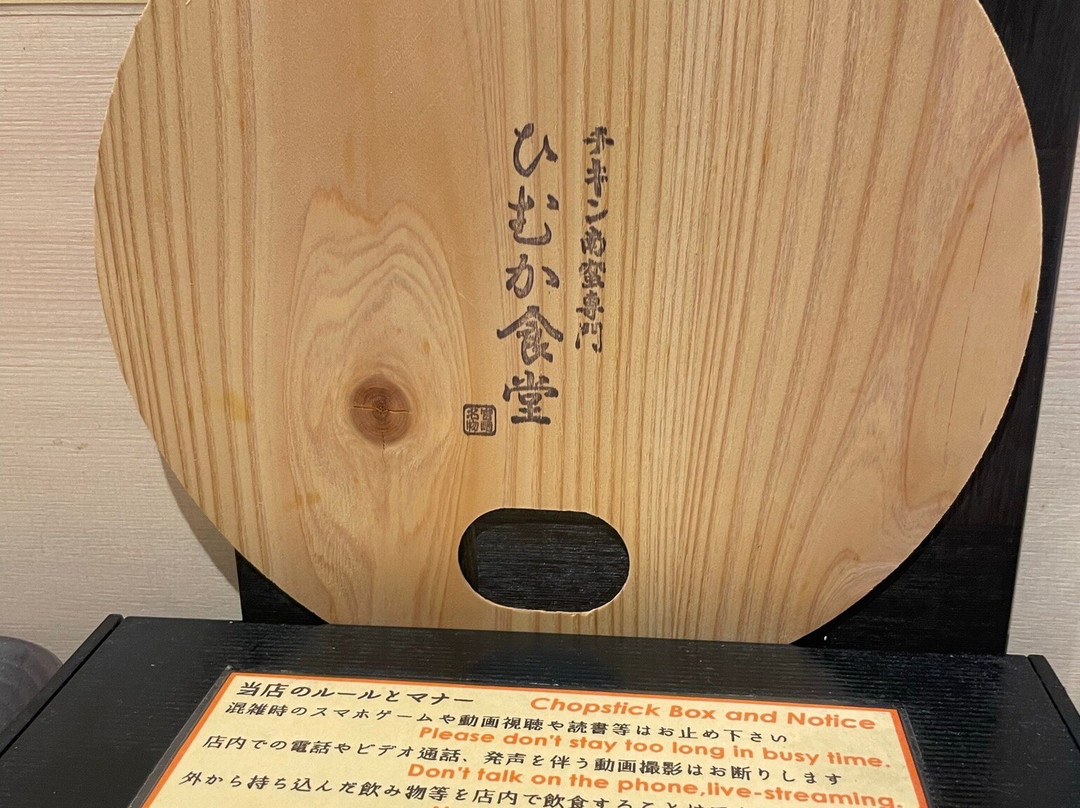 チキン南蛮専門
ひむか食堂
宮崎
名物
当店のルールとマナー
Chopstick Box and Notice
混雑時のスマホゲームや動画視聴や読書等はお止め下さい
Please don't stay too long in busy time.
店内での電話やビデオ通話、発声を伴う動画撮影はお断りします
Don't talk on the phone,live-streaming.
外から持ち込んだ飲み物等を店内で飲食することは